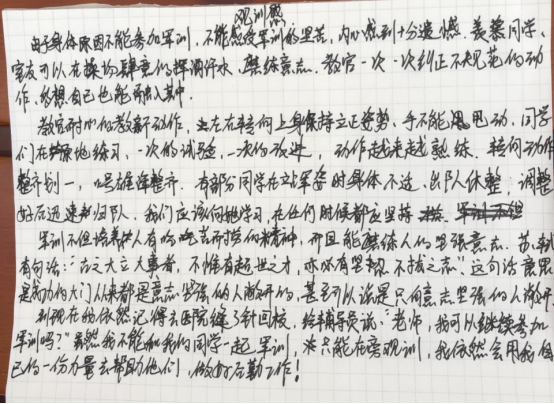 观训感
由于身体原因不能参加军训，不能感受军训的坚苦，内心感到十分遗憾。羡慕同学，
室友可以在操场肆意的挥洒汗水，磨练意志。教官一次一次纠正不规范的动
作，多想自己也能融入其中。
教官耐心的教新动作，左右转向上身保持立正姿势，手不能甩动，同学
们在原地练习，一次的试验，一次的改进，动作越来越熟练，转向动作
整齐划一，口号雄浑整齐。有部分同学在立军姿时身体不适，出队休整，调整
好后迅速归队，我们应该向她学习，在任何时候都应坚持
军训不但培养人有吃苦耐劳的精神，而且能磨练人的坚强意志。苏轼
有句话："古之大立大事者，不惟有超世之才，亦必有坚韧不拔之志"这句话意思
是成功的大门从来都是意志坚强的人敞开的，甚至可以说是只向意志坚强的人敞开
到现在的我依然记得去医院缝了针回校，给辅导员说："老师，我可以继续参加
军训吗？"虽然我不能和我的同学一起军训，只能在旁观训，我依然会用我自
己的一份力量去帮助他们，做好后勤工作！